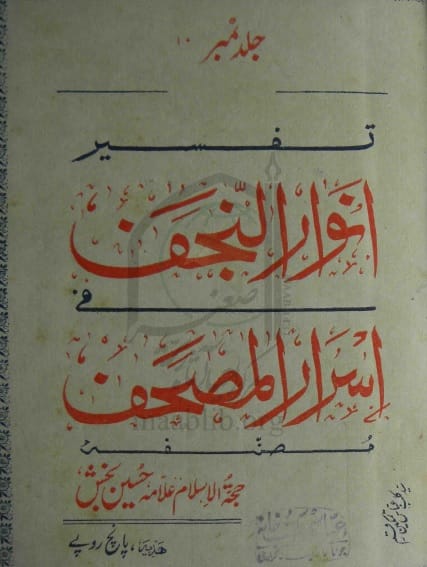 جلد نمبر ۱۰
تفسیر
انوار النجف
فی
اسرار المصحف
مصنفہ
حجۃ الاسلام علامہ حسین بخش
ھدیہ، پانچ روپے
maablib.org